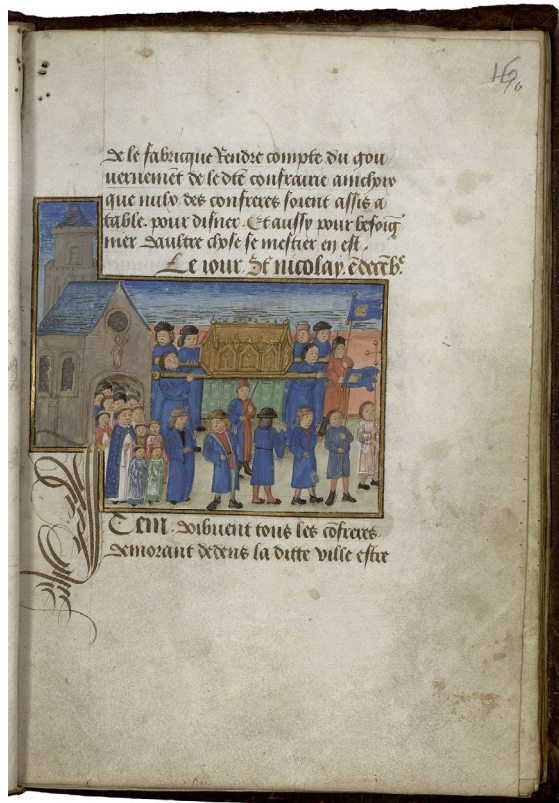 16
de le fabricque Rendre compte du gou
uernemēt de le dte confrairie ainchoiz
que nulz des confreres soient assis a
table. pour disner. Et aussy pour besoig
nier daultre chose se mestier en est.
Le iour St nicolay, e decēbre
Item doibuent tous les cōfreres
demorant dedens la ditte ville estre